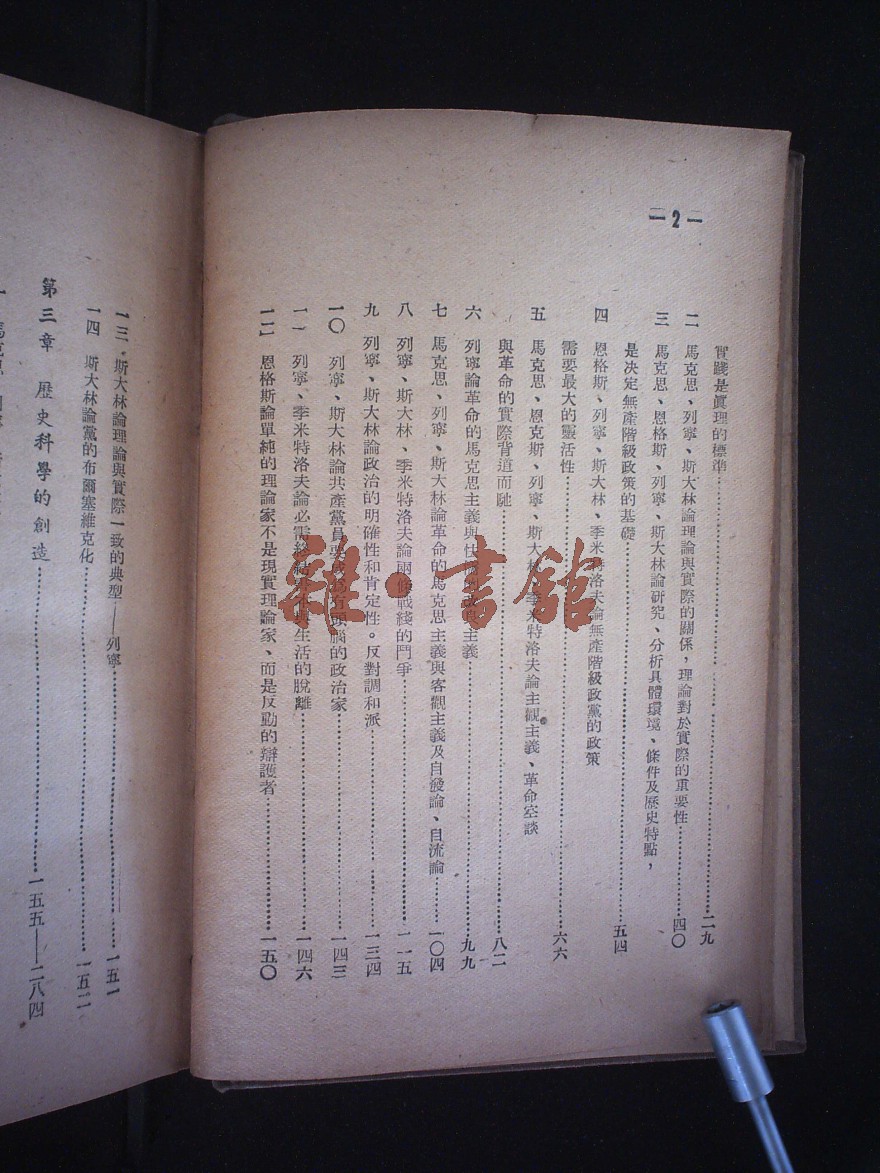 —2—
實踐是眞理的標準……二九
二 馬克思、列寧、斯大林論理論與實際的關係，理論對於實際的重要性……四〇
三 馬克思、恩格斯、列寧、斯大林論研究、分析具體環境、條件及歷史特點，
是決定無產階級政策的基礎……五四
四 恩格斯、列寧、斯大林、季米特洛夫論無產階級政黨的政策
需要最大的靈活性……六六
五 馬克思、恩克斯、列寧、斯大林、季米特洛夫論主觀主義、革命空談
與革命的實際背道而馳……八二
六 列寧論革命的馬克思主義與 改良主義……九九
七 馬克思、列寧、斯大林論革命的馬克思主義與客觀主義及自發論、自流論……一〇四
八 列寧、斯大林、季米特洛夫論兩條戰綫的鬥爭……一一五
九 列寧、斯大林論政治的明確性和肯定性。反對調和派……一三四
一〇 列寧、斯大林論共產黨員要成爲有頭腦的政治家……一四三
一一 列寧、季米特洛夫論必需終結 與生活的脫離……一四六
一二 恩格斯論單純的理論家不是現實理論家、而是反動的辯護者……一五〇
一三 斯大林論理論與實際一致的典型——列寧……一五一
一四 斯大林論黨的布爾塞維克化……一五二
第三章 歷史科學的創造……一五五——二八四
一 馬克思
雜·書館